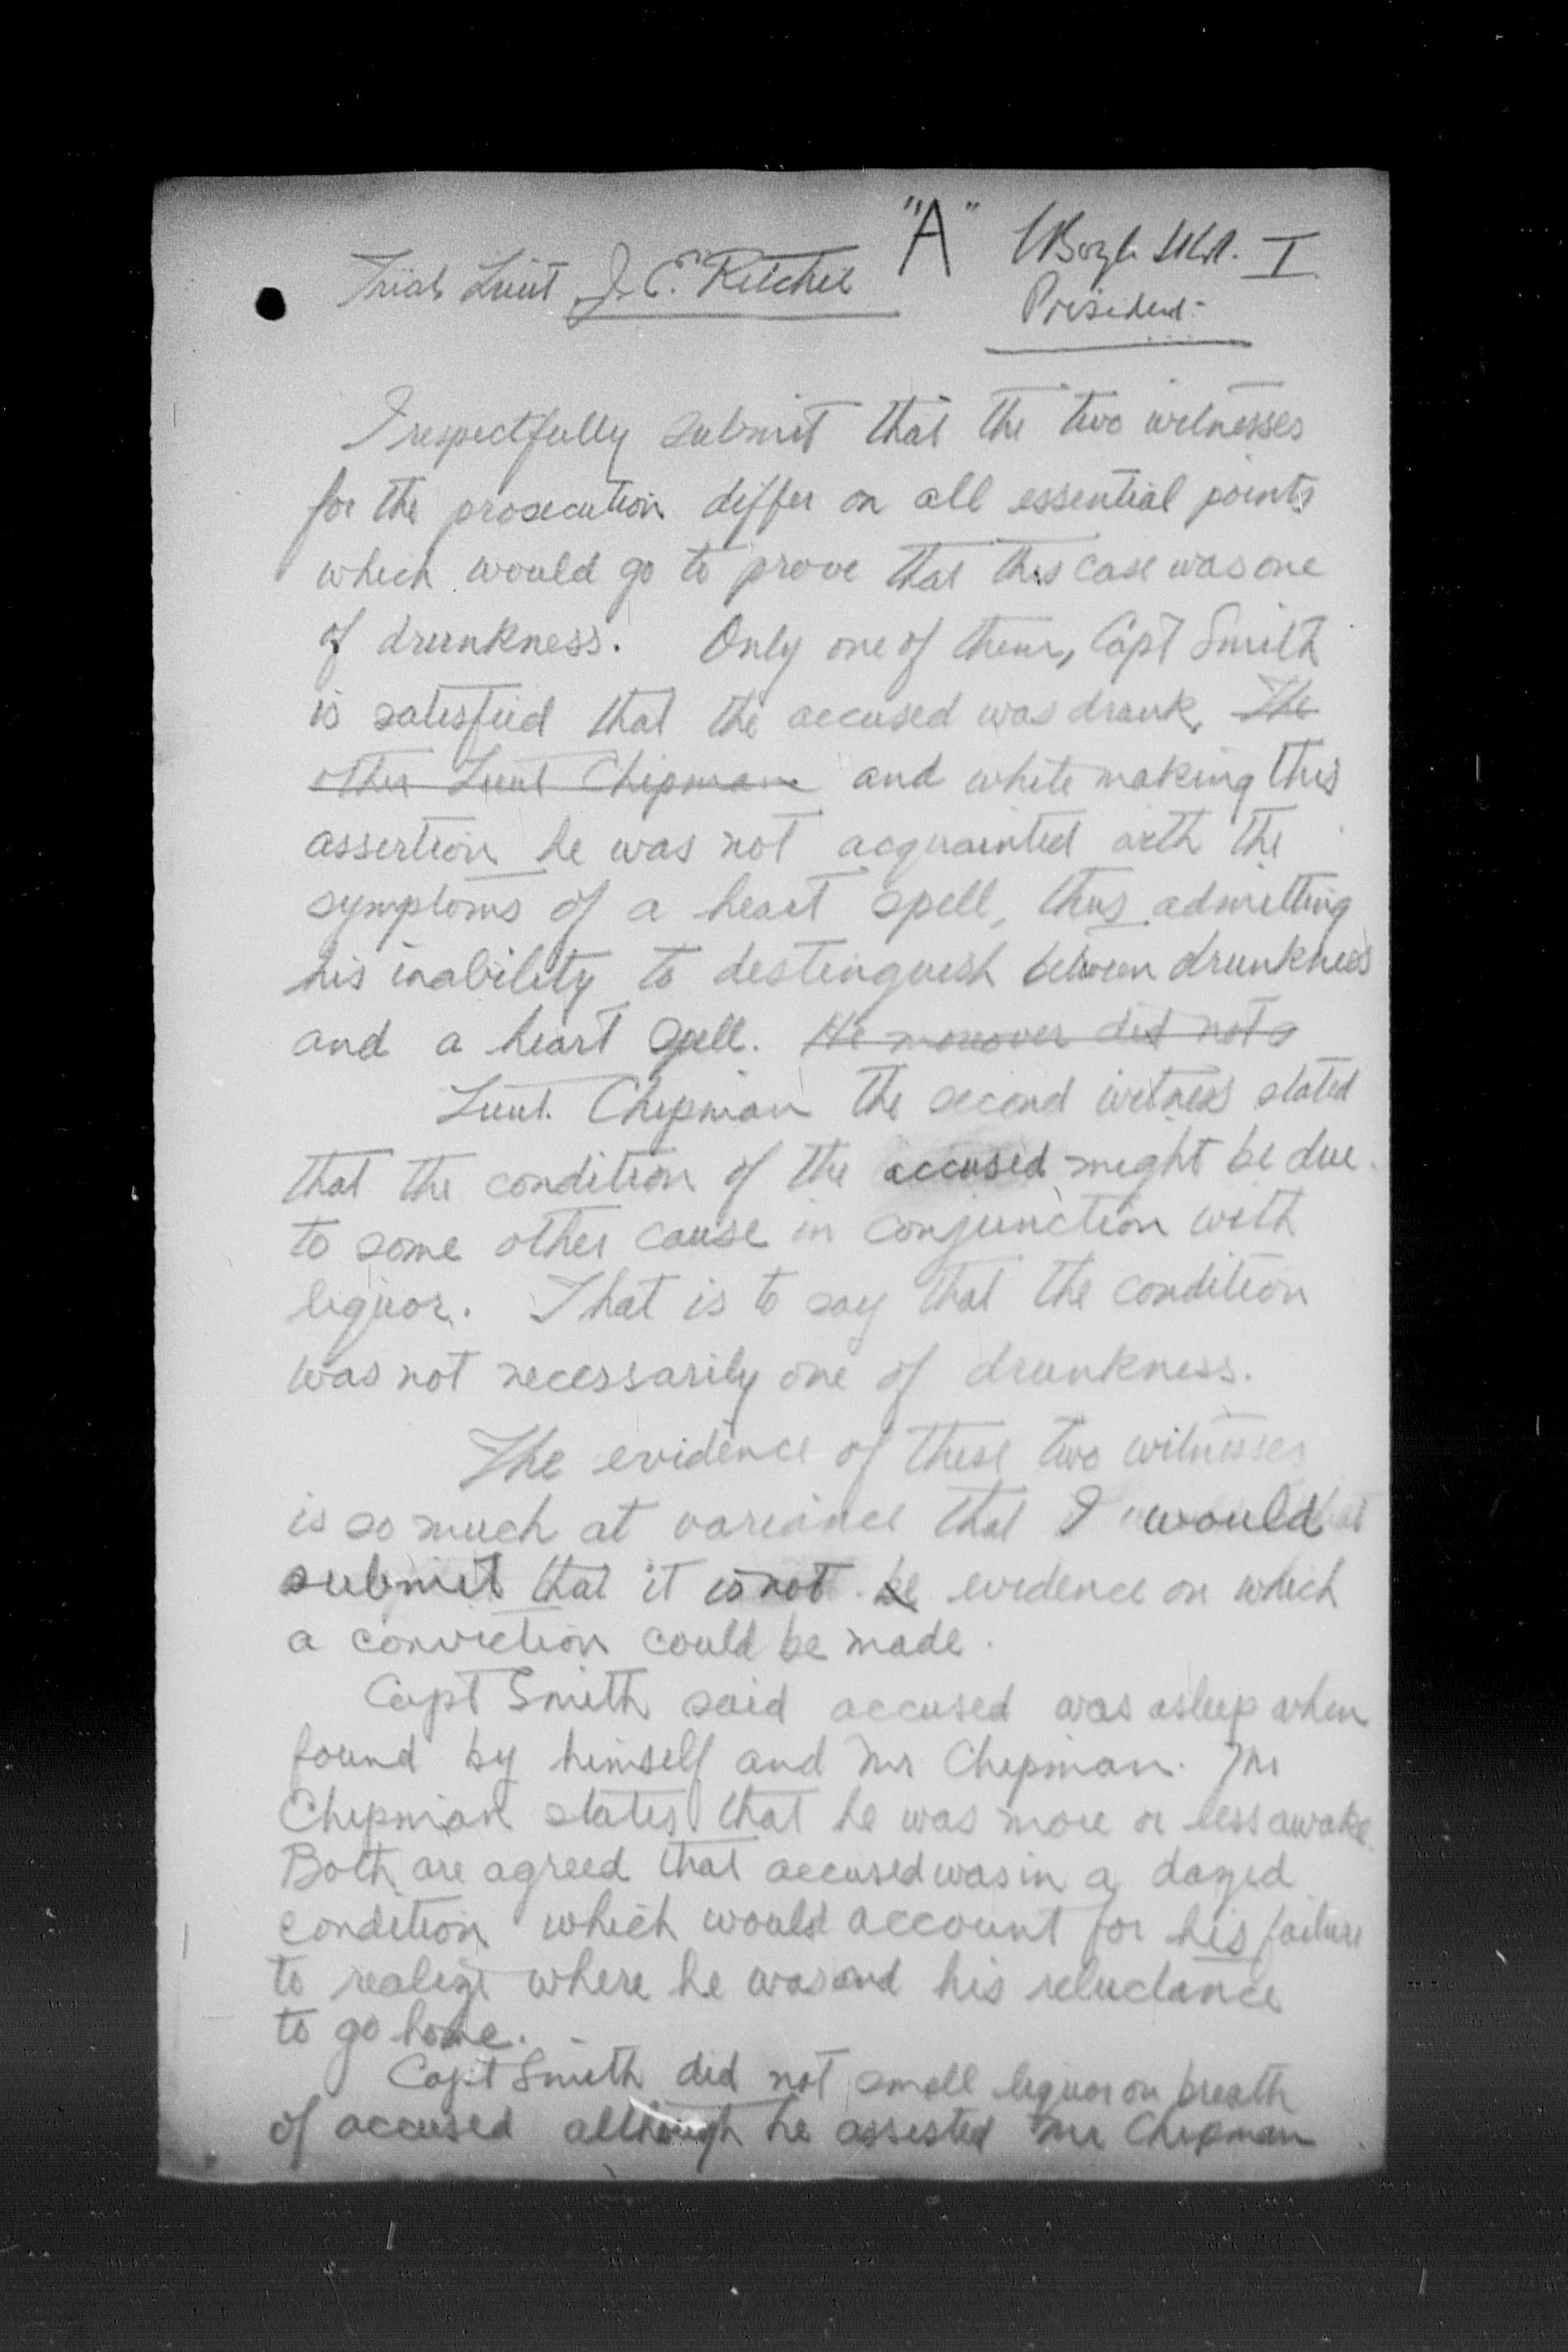 "A"
I
Trial Lieut J. E. Ritchie
President
I respectfully submit that the two witnesses
for the prosecution differ on all essential points
which would go to prove that this case was one
of drunkness. Only one of them, Capt Smith
is satisfied that the accused was drunk, The
other Lieut Chipman and while making this
assertion he was not acquainted with the
symptoms of a heart spell, thus admitting
his inability to distinguish between drunkness
and a heart spell. He moreover did not
Lieut. Chipman the second witness stated
that the condition of the accused might be due
to some other cause in conjunction with
liquor. That is to say that the condition
was not necessarily one of drunkness.
The evidence of these two witnesses
is so much at variance that I would
submit that it is not be evidence on which
a conviction could be made.
Capt Smith said accused was asleep when
found by himself and Mr Chipman. Mr
Chipman states that he was more or less awake.
Both are agreed that accused was in a dazed
condition which would account for his failure
to realize where he was and his reluctance
to go home.
Capt Smith did not smell liquor on breath
of accused although he assisted Mr Chipman